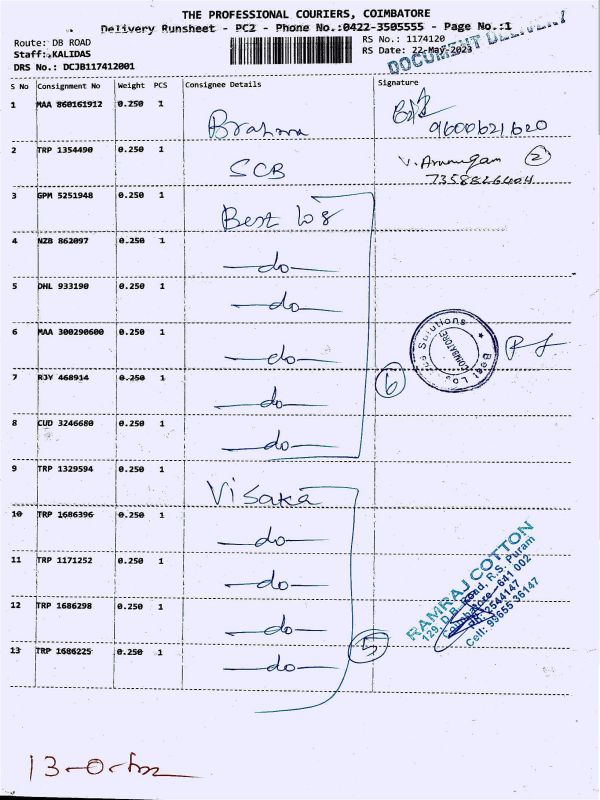 THE PROFESSIONAL COURIERS, COIMBATORE
Delivery Runsheet - PC2 - Phone No.:0422-3505555 - Page No.:1
Route: DB ROAD
RS No.: 1174120
Staff:.KALIDAS
RS Date: 22-May-2023
DOCUMENT DELIVERY
DRS No.: DCJB117412001
S No Consignment No Weight PCS Consignee Details Signature
1 MAA 860161912 0.250 1 Brahma 9600621620
2 TRP 1354490 0.250 1 SCB V. Arumugam 2
3 GPM 5251948 0.250 1 Best log
4 NZB 862097 0.250 1 -do-
5 DHL 933190 0.250 1 -do-
6 MAA 300290600 0.250 1 -do-
Best Logistics Solutions
COIMBATORE
7 RJY 468914 0.250 1 -do- 6
8 CUD 3246680 0.250 1 -do-
9 TRP 1329594 0.250 1 Visaka
10 TRP 1686396 0.250 1 -do-
11 TRP 1171252 0.250 1 -do-
12 TRP 1686298 0.250 1 -do-
13 TRP 1686225 0.250 1 -do- 5
RAMRAJ COTTON
129, D.B. Road, R.S. Puram
Coimbatore - 641 002
PH: 2544147
Cell: 99655 36147
13-0-